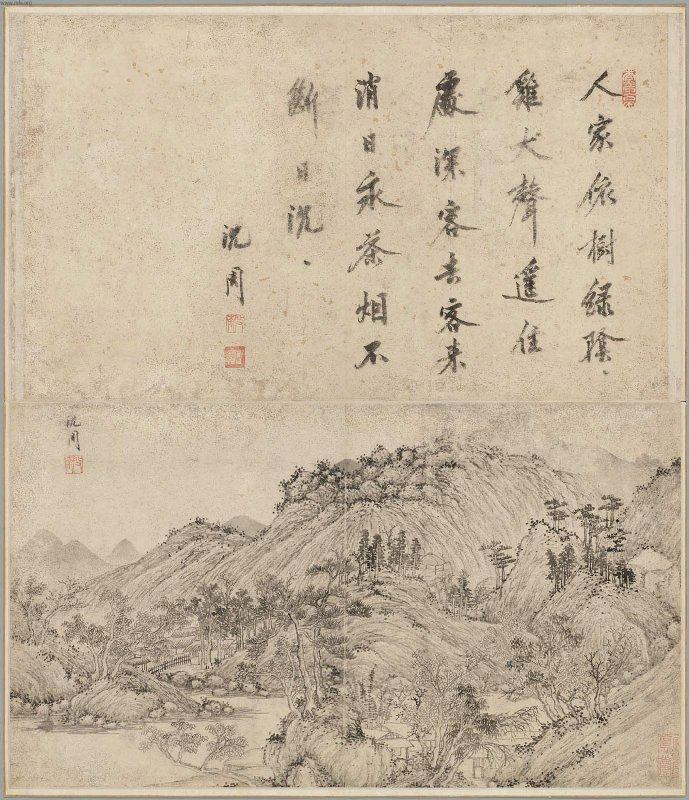 人家依樹緑陰、
雞犬聲遥住
處深客去客来
消日永茶烟不
斷日沉、
沈周
沈周